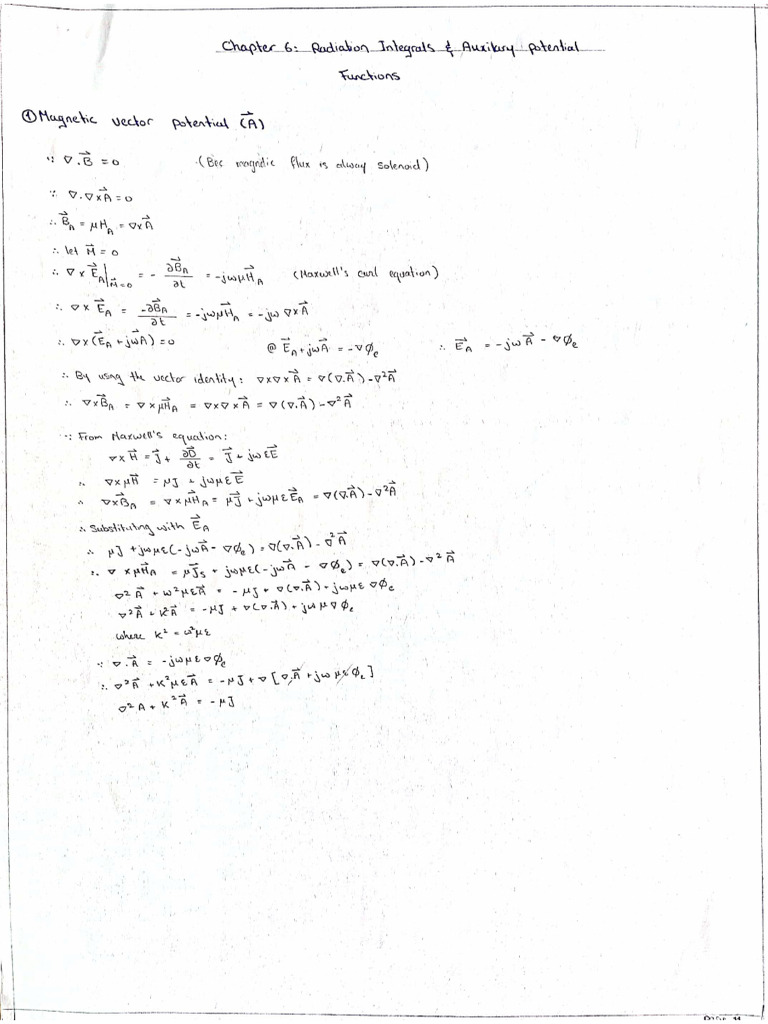 Chapter 6: Radiation Integrals & Auxilary potential
Functions
① Magnetic vector potential (A⃗)
∵ ∇.B⃗ = 0 (Bec magndic flux is alway solenoid)
∵ ∇.∇×A⃗ = 0
∴ B⃗_A = μH_A = ∇×A⃗
∴ let M⃗ = 0
∴ ∇×E⃗_A|_M⃗=0 = - ∂B⃗_A/∂t = -jωμH⃗_A (Maxwell's curl equation)
∴ ∇× E⃗_A = -∂B⃗_A/∂t = -jωμH⃗_A = -jω ∇×A⃗
∴ ∇×(E⃗_A + jωA⃗) = 0 @ E⃗_A + jωA⃗ = -∇ϕ_e ∴ E⃗_A = -jωA⃗ - ∇ϕ_e
∴ By using the vector identity: ∇×∇×A⃗ = ∇(∇.A⃗) - ∇²A⃗
∴ ∇×B⃗_A = ∇×μH⃗_A = ∇×∇×A⃗ = ∇(∇.A⃗) - ∇²A⃗
∵ From Maxwell's equation:
∇×H⃗ = J⃗ + ∂D⃗/∂t = J⃗ + jωεE⃗
∴ ∇×μH⃗ = μJ + jωμεE⃗
∴ ∇×B⃗_A = ∇×μH⃗_A = μJ⃗ + jωμεE⃗_A = ∇(∇.A⃗) - ∇²A⃗
∴ Substituting with E⃗_A
∴ μJ + jωμε(-jωA⃗ - ∇ϕ_e) = ∇(∇.A⃗) - ∇²A⃗
∴ ∇ ×μH⃗_A = μJ⃗_s + jωμε(-jωA⃗ - ∇ϕ_e) = ∇(∇.A⃗) - ∇²A⃗
∇²A⃗ + ω²μεA⃗ = -μJ + ∇(∇.A⃗) + jωμε∇ϕ_e
∇²A⃗ + K²A⃗ = -μJ + ∇(∇.A⃗) + jωμ∇ϕ_e
where K² = ω²με
∵ ∇.A⃗ = -jωμε∇ϕ_e
∴ ∇²A⃗ + K²μεA⃗ = -μJ + ∇[∇.A⃗ + jωμεϕ_e]
∇²A + K²A⃗ = -μJ